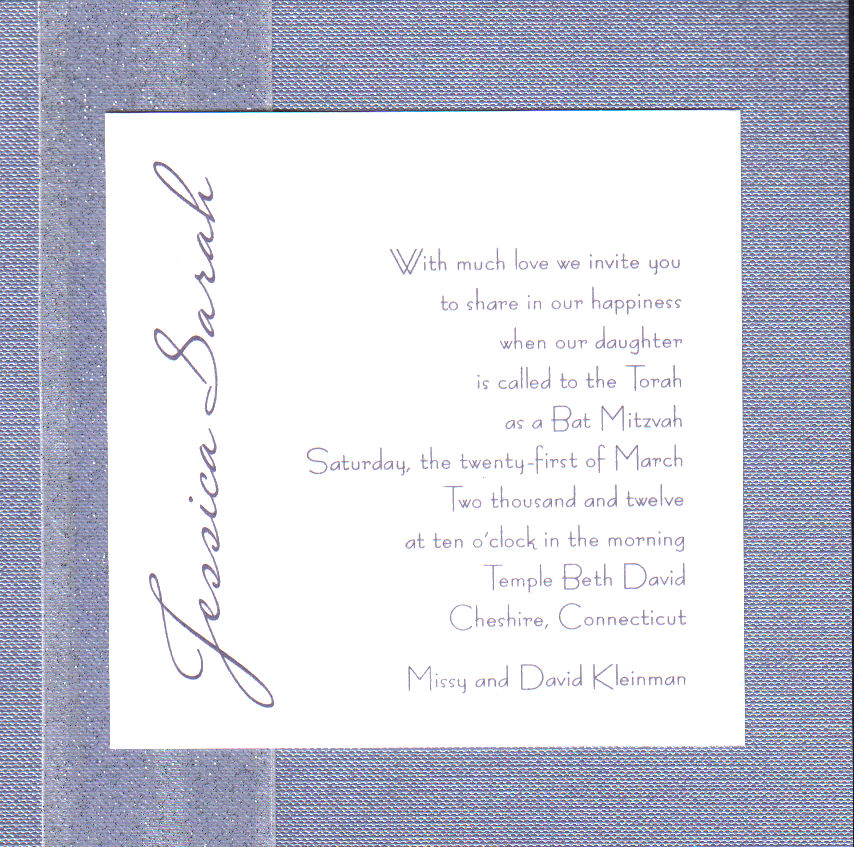 Jessica Sarah
With much love we invite you
to share in our happiness
when our daughter
is called to the Torah
as a Bat Mitzvah
Saturday, the twenty-first of March
Two thousand and twelve
at ten o'clock in the morning
Temple Beth David
Cheshire, Connecticut
Missy and David Kleinman